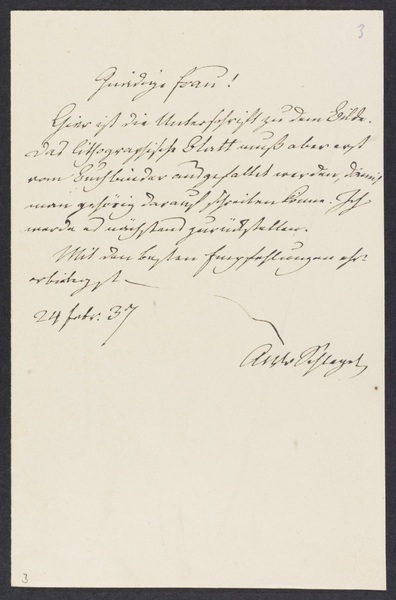 3
Gnädige Frau!
Hier ist die Unterschrift zu dem Bilde.
Das lithographische Blatt muß aber erst
vom Buchbinder aufgefaltet werden, damit
man gehörig darauf schreiben könne. Ich
werde es nächstens zurückstellen.
Mit den besten Empfehlungen ehr-
erbietigst
24 Febr. 37
AWv Schlegel
3